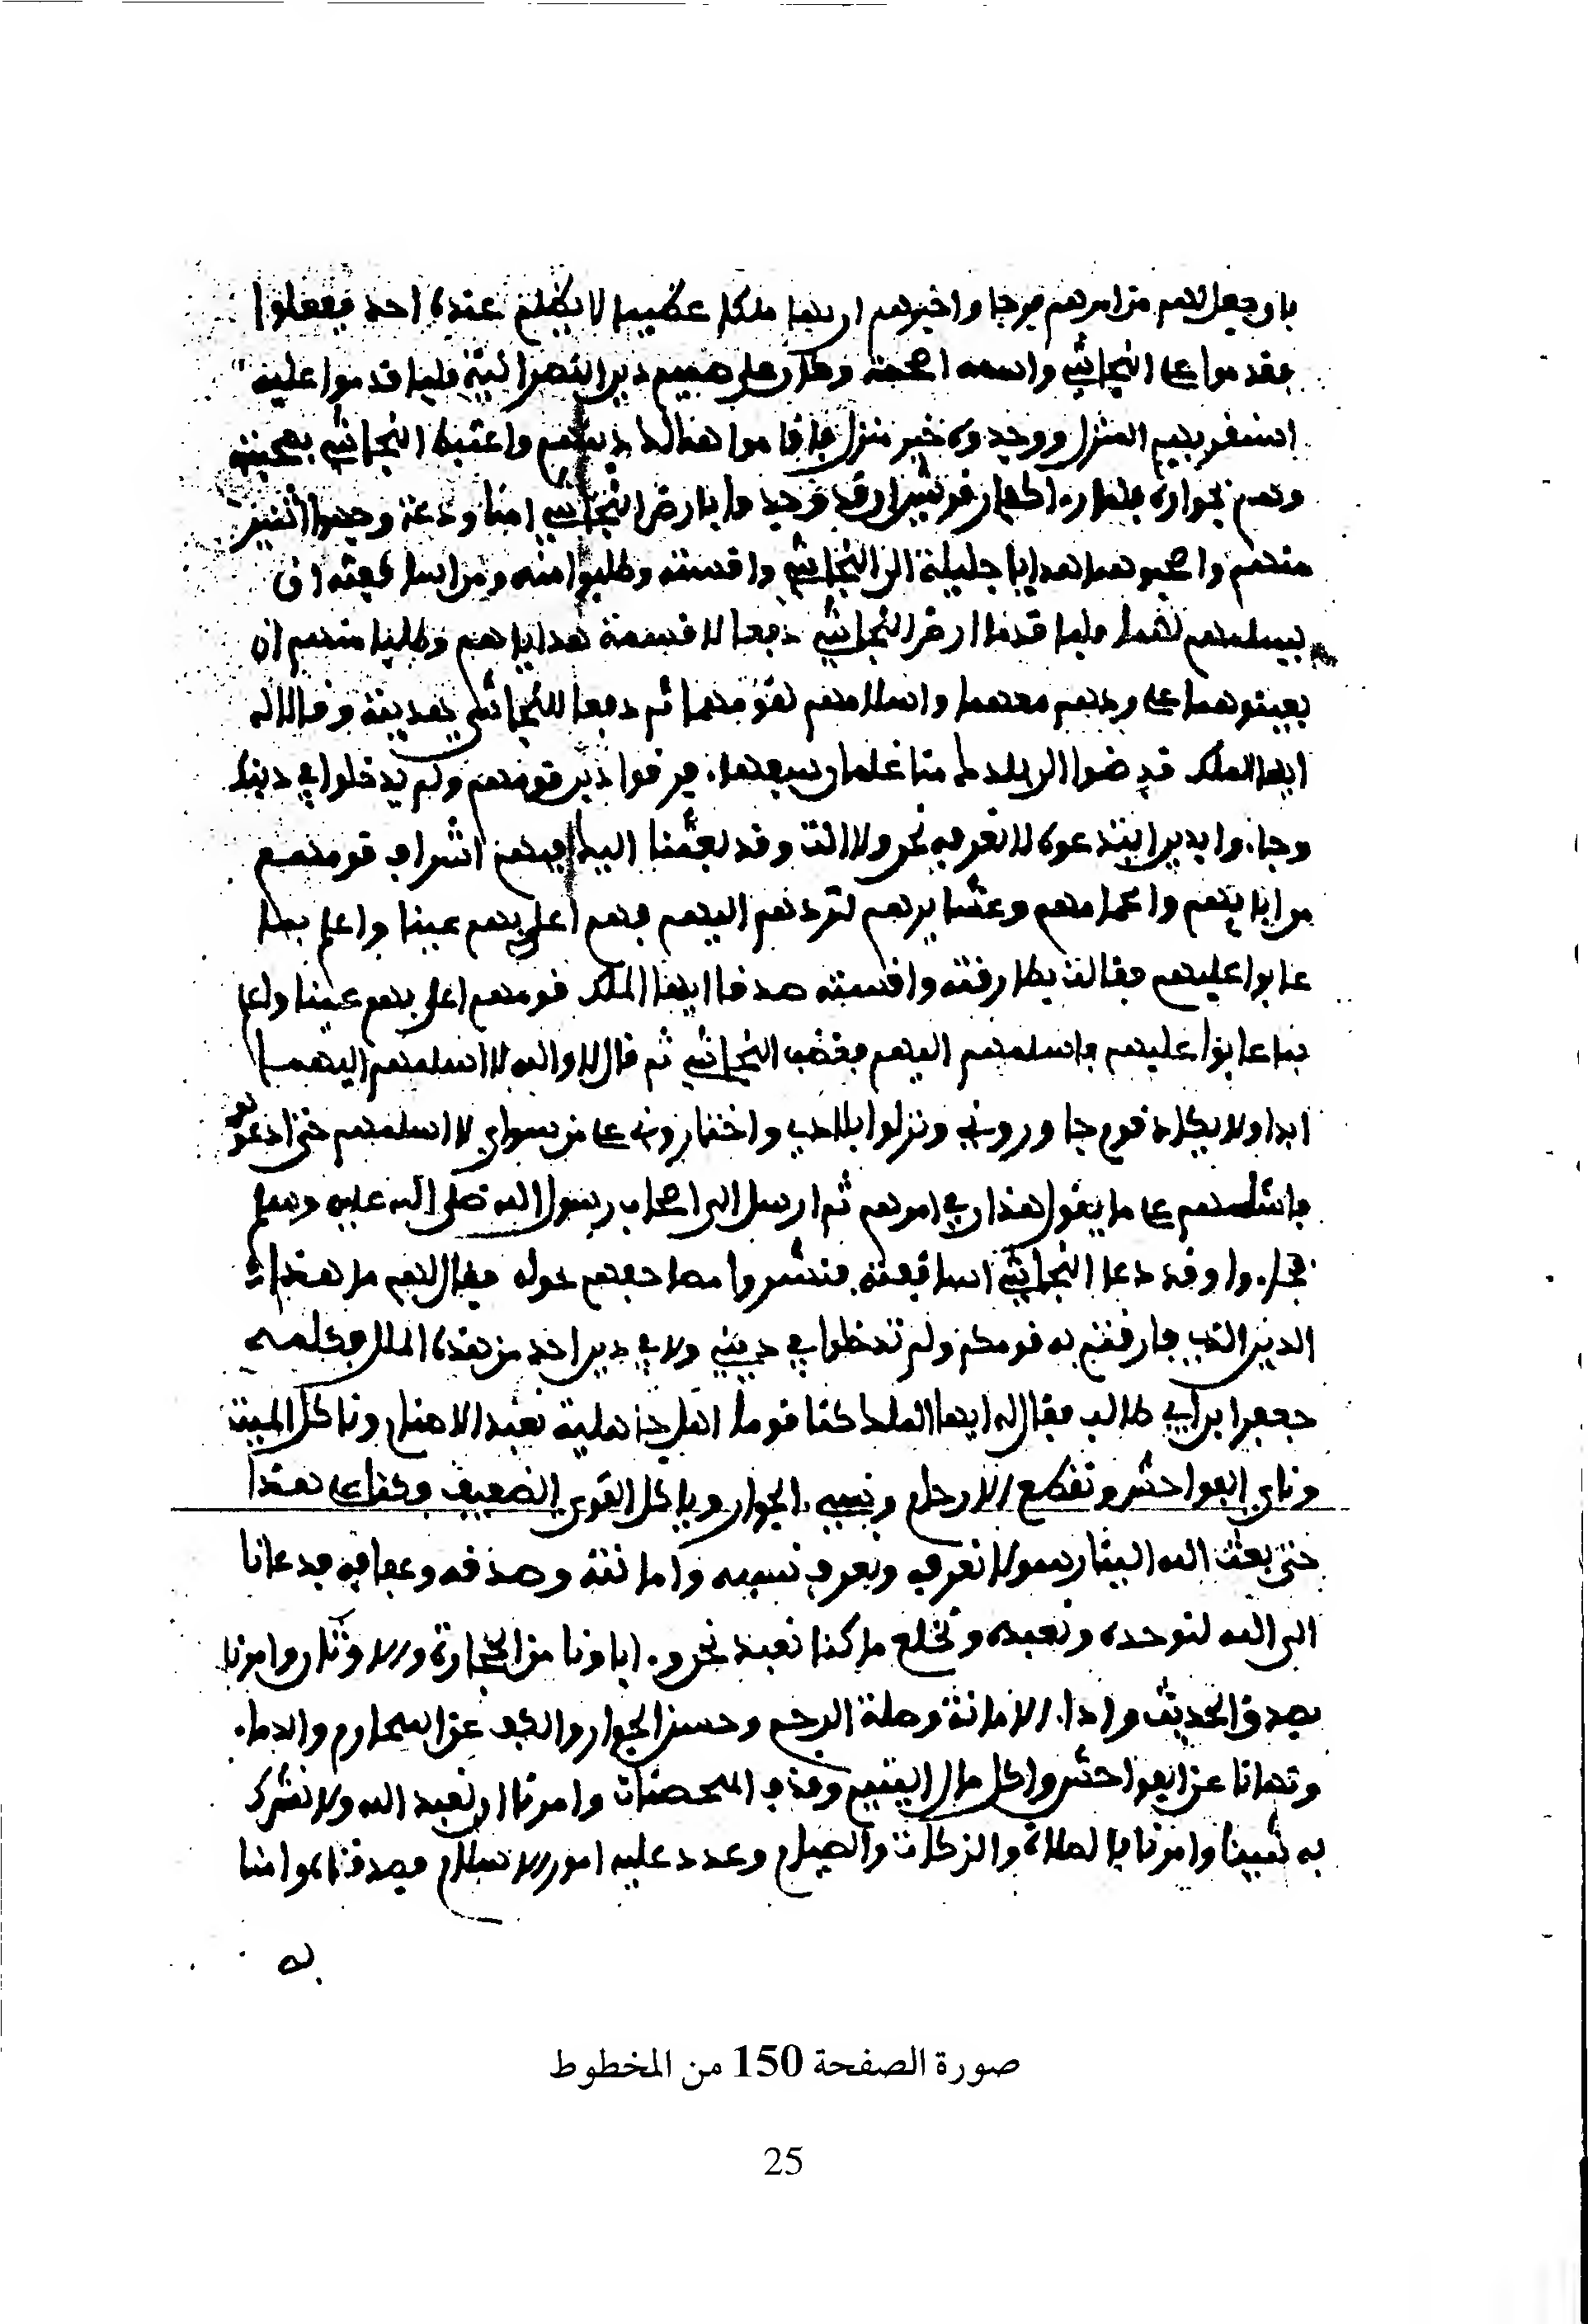 باو جعل لهم من امرهم فرجا واخبرهم ان بها ملكا عظيما لا يظلم عنده احد ففعلوا
فقدموا على النجاشي واسمه اصحمة وكان على صميم دين النصرانية فلما قدموا عليه
استقر بهم المنزل ووجدوه خير منزل فاقاموا هنالك واغتبط النجاشي بصحبته
وهم بجواره فلما را كفار قريش ان قد وجدوا بارض النجاشي امنا ودعة وجهوا اثنين
منهم واصحبوهما هدايا جليلة الى النجاشي واقسته وطلبوا منه ومن اساقفته ان
يسلمهم لهما فلما قدما ارض النجاشي دفعا للاقسة هداياهم وطلبا منهم ان
يعينوهما على ردهم معهما واسلامهم لقومهما ثم دفعا للنجاشي هديته وقالا له
ايها الملك قد ضوا الى بلدك منا غلمان سفهاء فرقوا دين قومهم ولم يدخلوا في دينك
وجاءوا بدين ابتدعوه لا نعرفه نحن ولا انت وقد بعثنا اليك فيهم اشراف قومهم
من ابايهم واعمامهم وعشايرهم لتردهم اليهم فهم اعلى بهم عينا واعلم بما
عابوا عليهم فقالت بطارقته واقسته صدقا ايها الملك قومهم اعلى بهم عينا واعلم
بما عابوا عليهم فاسلمهم اليهم فغضب النجاشي ثم قال لا والله لا اسلمهم اليهما
ابدا ولا يكاد قوم جاوروني ونزلوا بلادي واختاروني على من سواي لا اسلمهم حتى ادعوهم
فاسئلهم على ما يقول هذان في امرهم ثم ارسل الى اصحاب رسول الله صلى الله عليه وسلم
فجاءوا وقد دعا النجاشي اساقفته فنشروا مصاحفهم حوله فقال لهم ما هذا
الدين الذي فارقتم به قومكم ولم تدخلوا في ديني ولا في دين احد من هذه الملل فكلمه
جعفر ابن ابي طالب فقال له ايها الملك كنا قوما اهل جاهلية نعبد الاصنام وناكل الميتة
وناتي الفواحش ونقطع الارحام ونسيء الجوار وياكل القوي الضعيف وكنا على هذا
حتى بعث الله الينا رسولا نعرفه ونعرف نسبه وامانته وصدقه وعفافه فدعانا
الى الله لنوحده ونعبده ونخلع ما كنا نعبد نحن وءاباونا من الحجارة والاوثان وامرنا
بصدق الحديث واداء الامانة وصلة الرحم وحسن الجوار والكف عن المحارم والدماء
ونهانا عن الفواحش واكل مال اليتيم وقذف المحصنات وامرنا ان نعبد الله ولا نشرك
به شيئا وامرنا بالصلاة والزكات والصيام وعدد عليه امور الاسلام فصدقناه وامنا
به
صورة الصفحة 150 من المخطوط
25